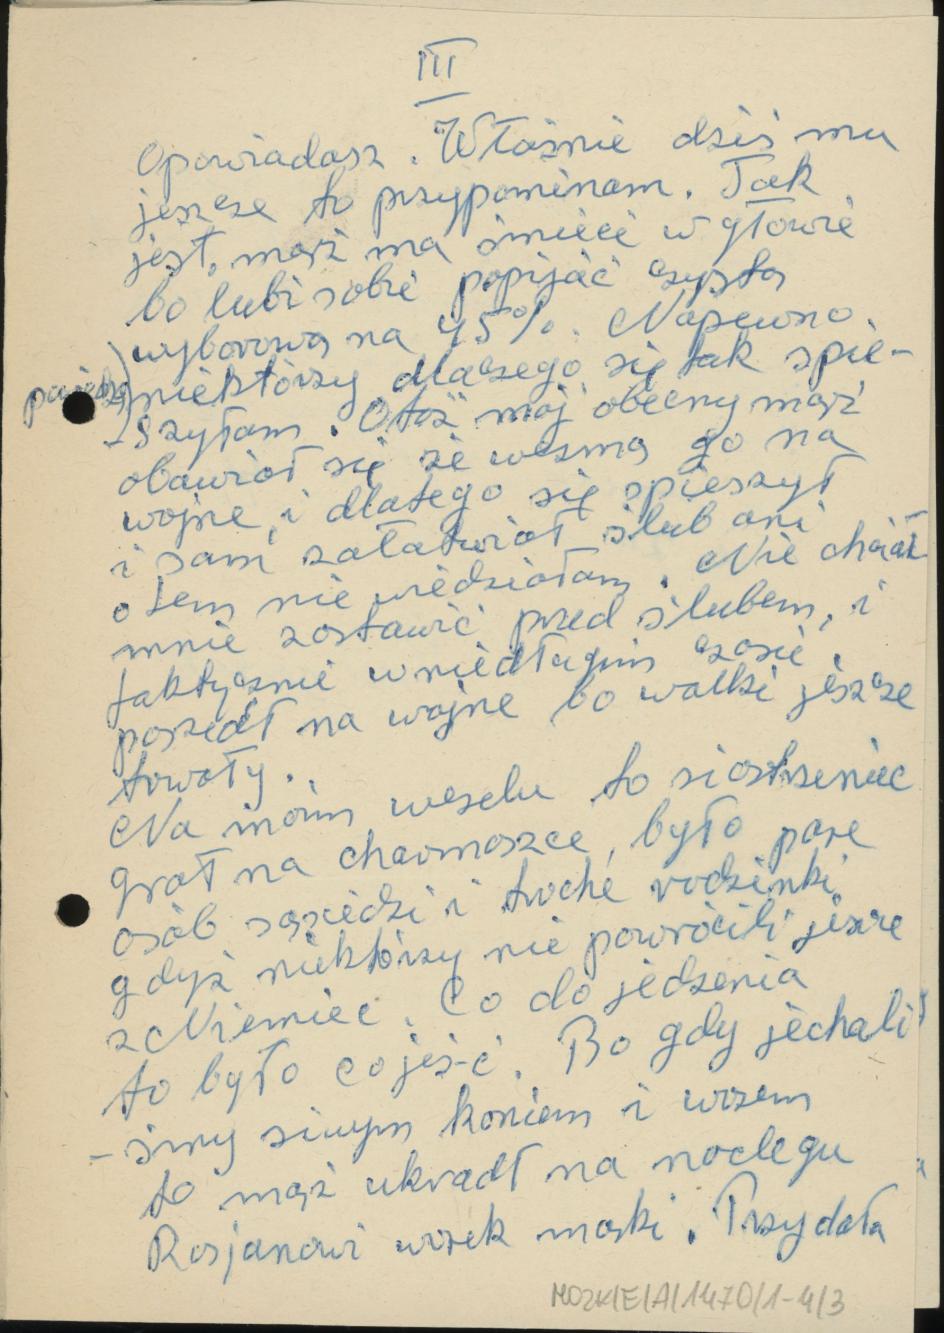 III
opowiadasz. Właśnie dziś mu
jeszcze to przypominam. Tak
jest, mąż ma śmieci w głowie
bo lubi sobie popijać czystą
wyborową na 45%. Napewno
powiedzą niektórzy dlaczego się tak spie-
-szyłam. Otóż mój obecny mąż
obawiał się że wezmą go na
wojne, i dlatego się spieszył
i sam załatwiał ślub ani
o tem nie wiedziałam. Nie chciał
mnie zostawić przed ślubem, i
faktycznie w niedługim czasie
poszedł na wojne bo walki jeszcze
trwały.
Na moim weselu to siostrzeniec
grał na charmoszce, było pare
osób sąsiedzi i troche rodzinki
gdyż niektórzy nie powrócili jeszcze
z Niemiec. Co do jedzenia
to było co jeś-ć. Bo gdy jechali
-śmy siwym koniem i wozem
to mąż ukradł na noclegu
Rosjanowi worek mąki. Przydała
MOZK/E/A/1470/1-4/3